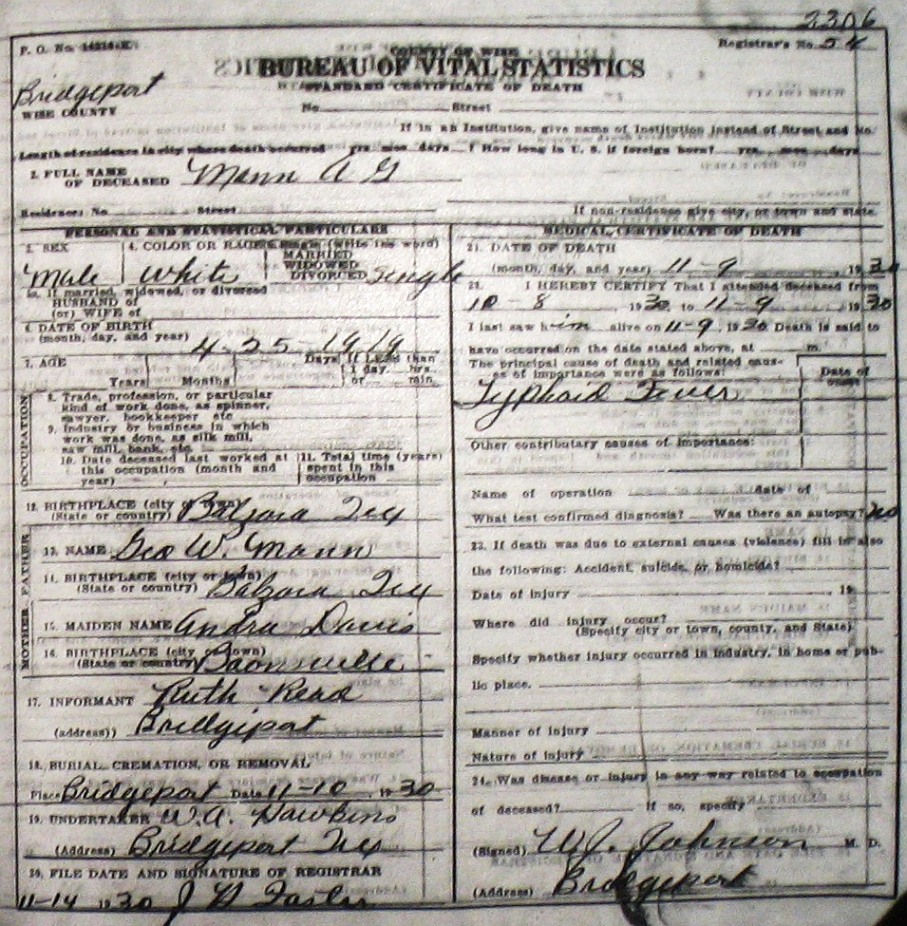 2306
P. O. No.
Registrar's No. 54
COUNTY OF WISE
BUREAU OF VITAL STATISTICS
STANDARD CERTIFICATE OF DEATH
Bridgeport
WISE COUNTY
No. Street
If in an Institution, give name of Institution instead of Street and No.
Length of residence in city where death occurred yrs mos days ? How long in U. S. if foreign born? yrs. mos. days
2. FULL NAME OF DECEASED Mann A G
Residence: No. Street
If non-residence give city, or town and state.
PERSONAL AND STATISTICAL PARTICULARS
3. SEX Male
4. COLOR OR RACE White
Single (write the word)
MARRIED
WIDOWED
DIVORCED Single
5a. If married, widowed, or divorced
HUSBAND of
(or) WIFE of
6. DATE OF BIRTH
(month, day, and year) 4-25-1919
7. AGE
Years Months Days If LESS than
1 day, hrs.
or min.
OCCUPATION
8. Trade, profession, or particular
kind of work done, as spinner,
sawyer, bookkeeper etc
9. Industry or business in which
work was done, as silk mill,
saw mill, bank, etc
10. Date deceased last worked at
this occupation (month and
year)
11. Total time (years)
spent in this
occupation
12. BIRTHPLACE (city or town)
(State or country) Balzora Tex
FATHER
13. NAME Geo W. Mann
14. BIRTHPLACE (city or town)
(State or country) Balzora Tex
MOTHER
15. MAIDEN NAME Andra Davis
16. BIRTHPLACE (city or town)
(State or country) Boonville
17. INFORMANT Ruth Read
(address)) Bridgeport
18. BURIAL, CREMATION, OR REMOVAL
Place Bridgeport Date 11-10 1930
19. UNDERTAKER W.A. Hawkins
(Address) Bridgeport Tex
20. FILE DATE AND SIGNATURE OF REGISTRAR
11-14 1930 J
MEDICAL CERTIFICATE OF DEATH
21. DATE OF DEATH
(month, day, and year) 11-9, 1930
I HEREBY CERTIFY That I attended deceased from
10-8 1930 to 11-9 1930
I last saw him alive on 11-9, 1930 Death is said to
have occurred on the date stated above, at m.
The principal cause of death and related caus-
es of importance were as follows:
Date of
onset
Typhoid Fever
Other contributory causes of importance:
Name of operation date of
What test confirmed diagnosis? Was there an autopsy? no
23. If death was due to external causes (violence) fill in also
the following: Accident, suicide, or homicide?
Date of injury 19
Where did injury occur?
(Specify city or town, county, and State)
Specify whether injury occurred in industry, in home or pub-
lic place.
Manner of injury
Nature of injury
24. Was disease or injury in any way related to occupation
of deceased? If so, specify
(Signed) W.J. Johnson M. D.
(Address) Bridgeport